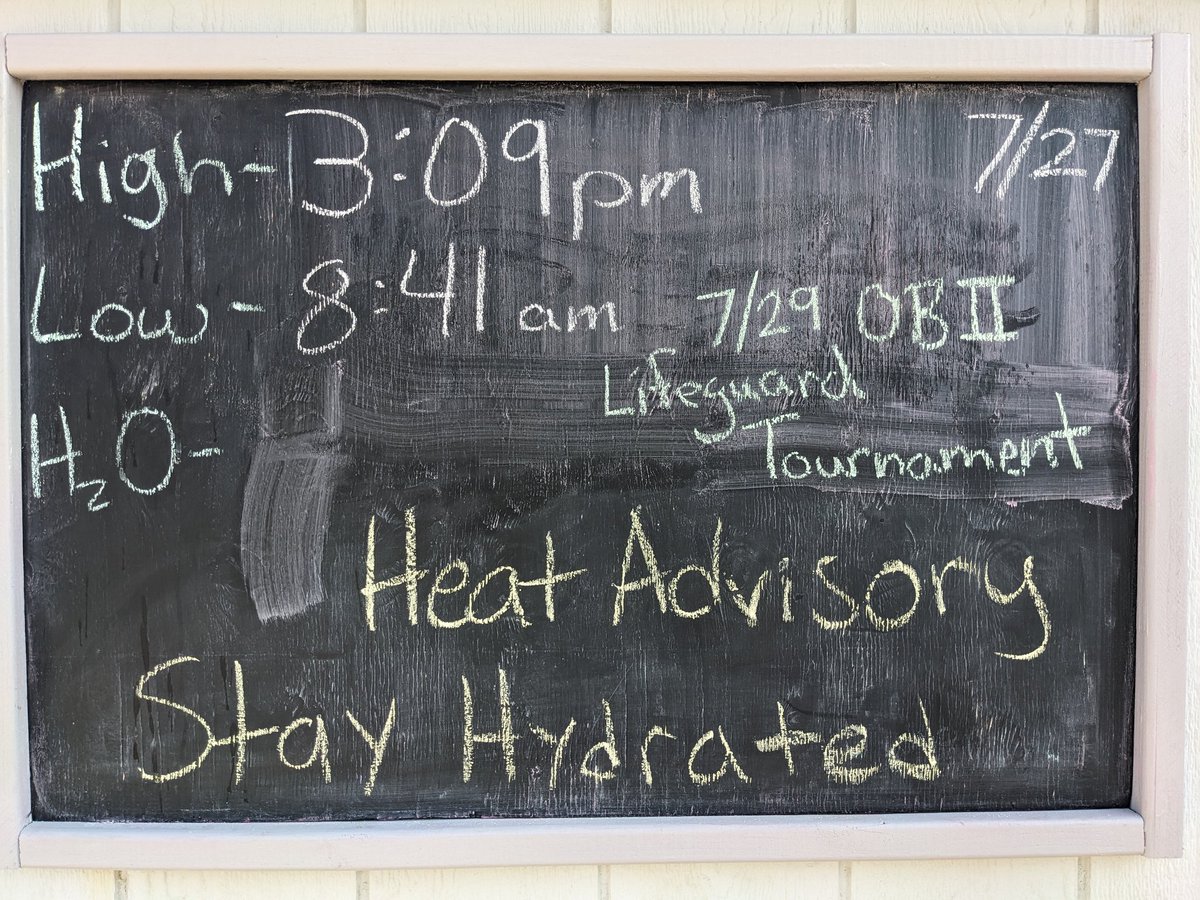 High- 3:09pm 7/27
Low- 8:41 am
7/29 OB II
Lifeguard
Tournament
H₂O-
Heat Advisory
Stay Hydrated